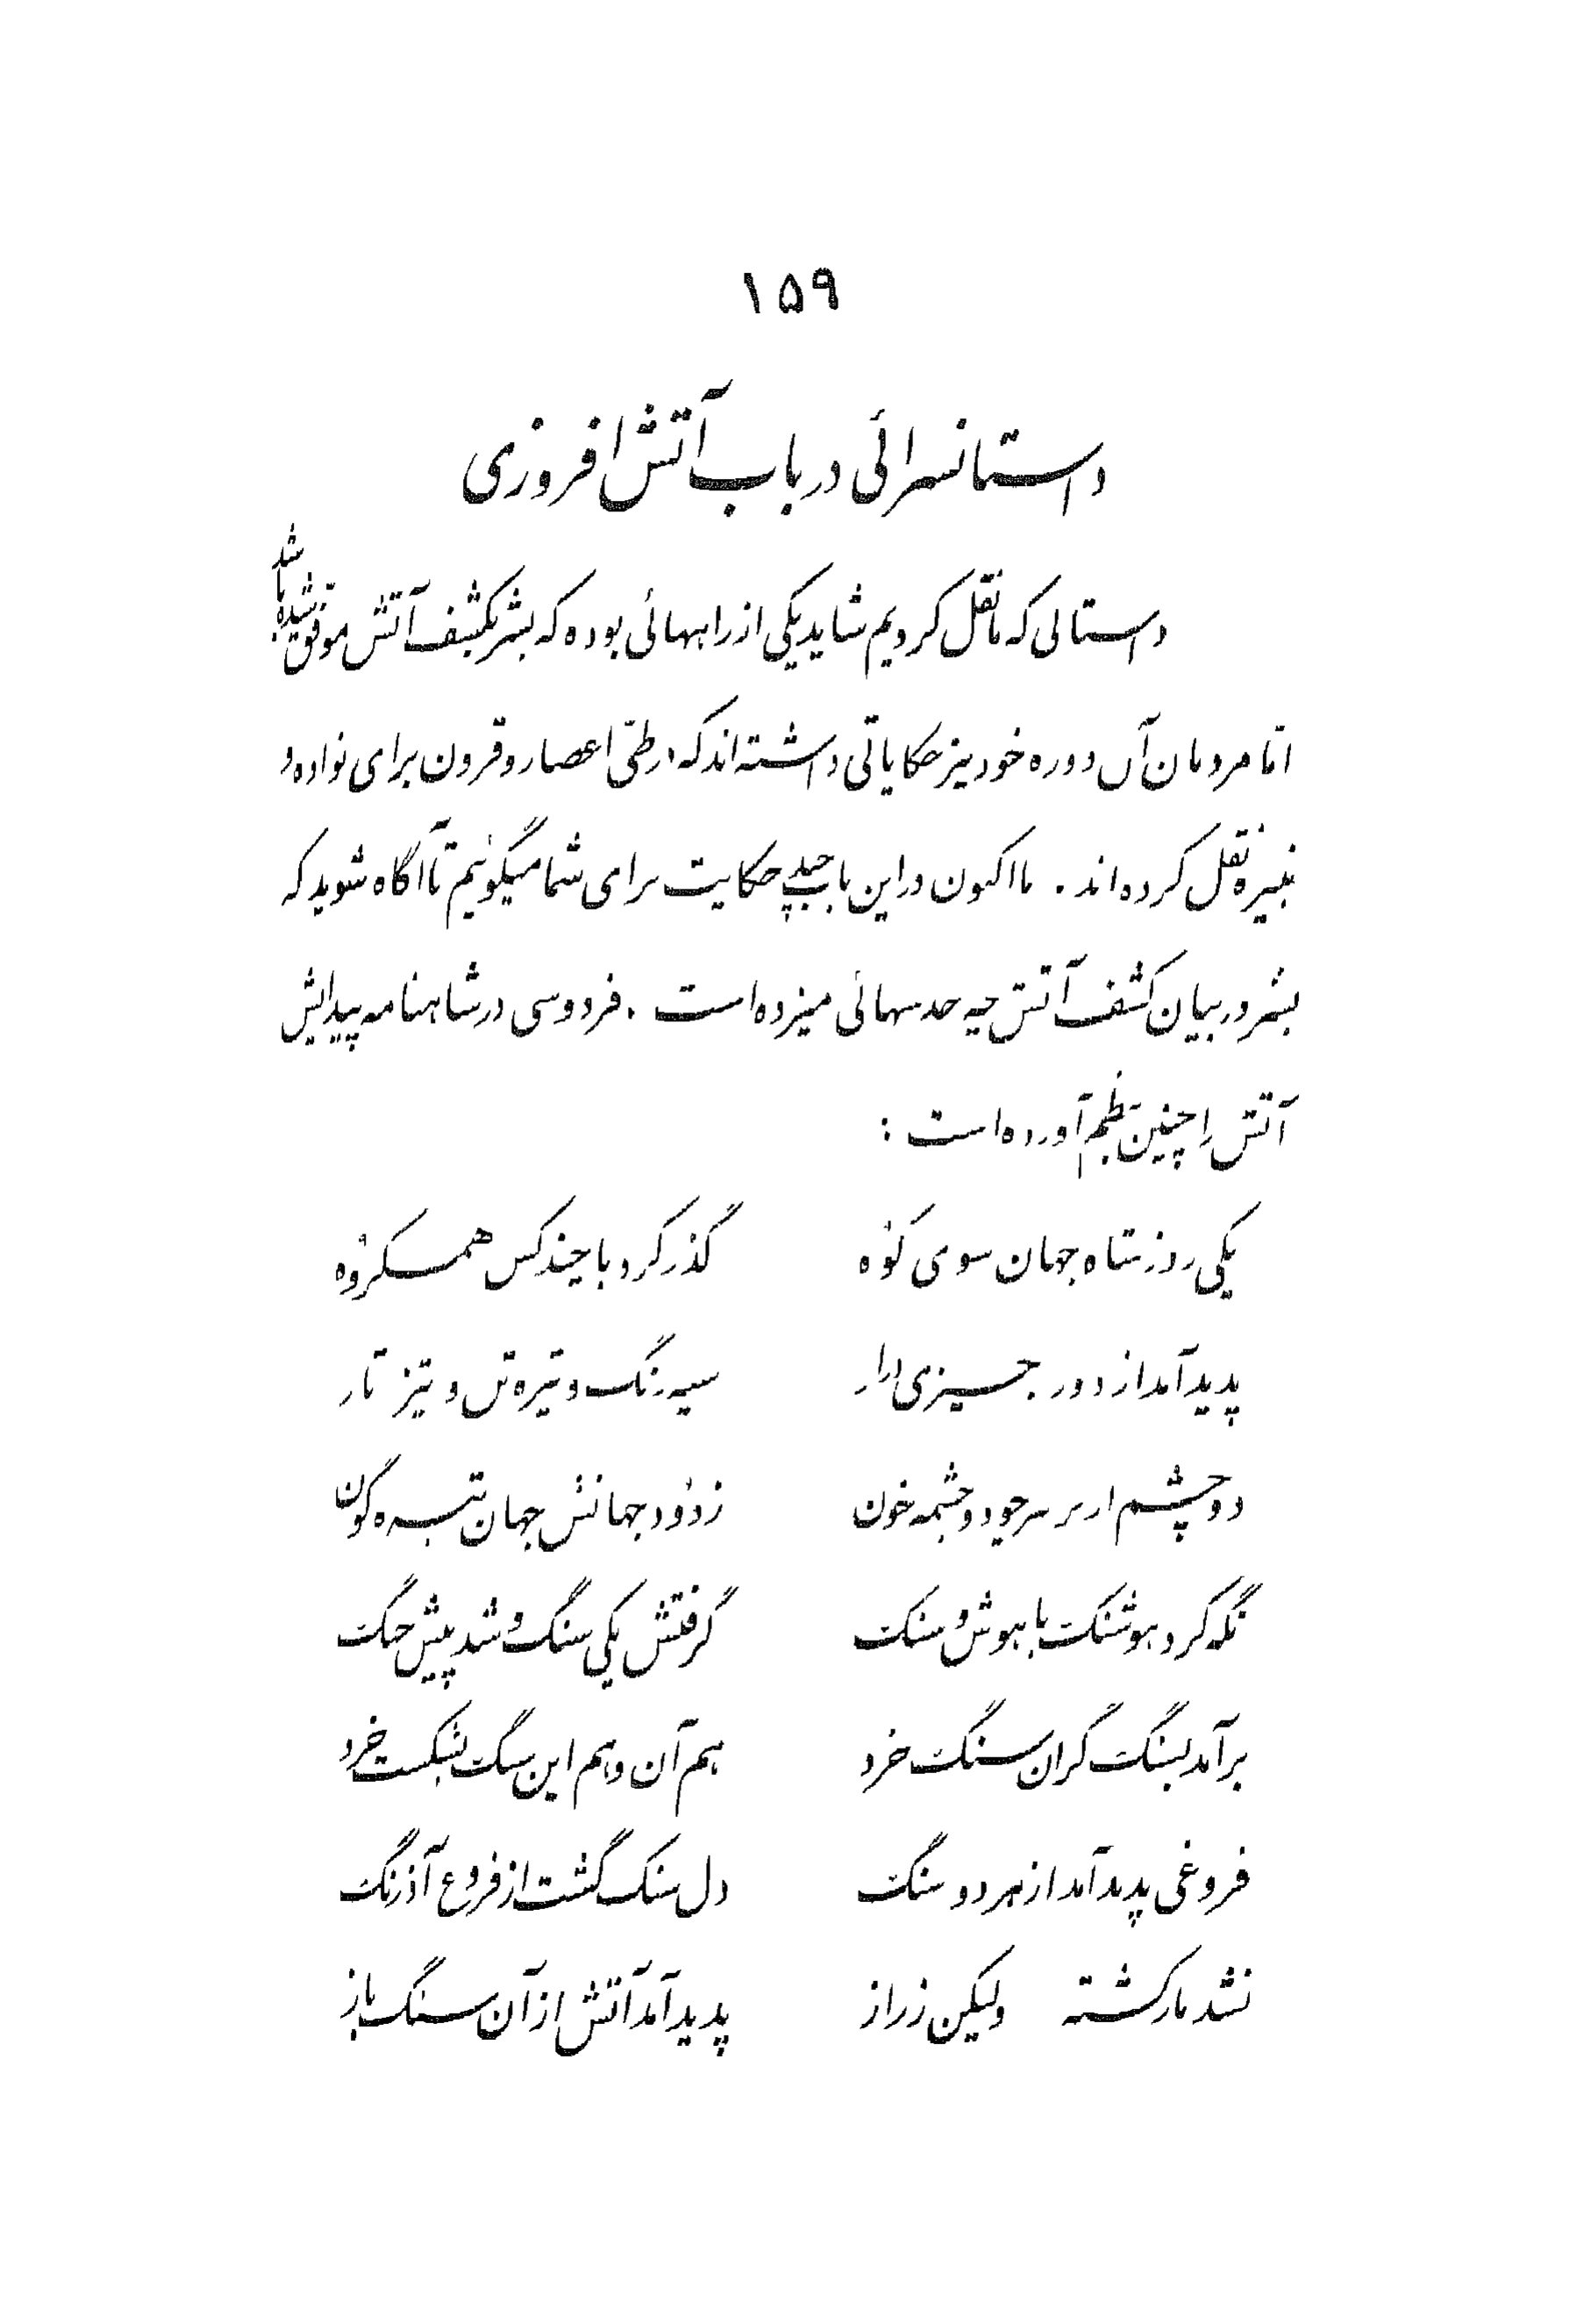 ۱۵۹
داستانسرائی در باب آتش افروزی
داستانی که ما نقل کردیم شاید یکی از راههائی بوده که بشر بکشف آتش موفق شده باشد
امّا مردمان آن دوره خود نیز حکایاتی داشته‌اند که در طیّ اعصار و قرون برای نواده و
نبیره نقل کرده‌اند . ما اکنون در این باب چند حکایت برای شما میگوئیم تا آگاه شوید که
بشر در بیان کشف آتش چه حدسهائی میزده است . فردوسی در شاهنامه پیدایش
آتش را چنین بنظم آورده است :
یکی روز شاه جهان سوی کوه گذر کرد با چند کس همگروه
پدید آمد از دور چیزی دراز سیه رنگ و تیره تن و تیز تاز
دو چشم از بر سر چو دو چشمه خون ز دود جهانش جهان تیره گون
نگه کرد هوشنگ با هوش و سنگ گرفتش یکی سنگ و شد پیش جنگ
برآمد بسنگ گران سنگ خرد هم آن و هم این سنگ بشکست خرد
فروغی پدید آمد از هر دو سنگ دل سنگ گشت از فروغ آذرنگ
نشد مار کشته ولیکن ز راز پدید آمد آتش از آن سنگ باز